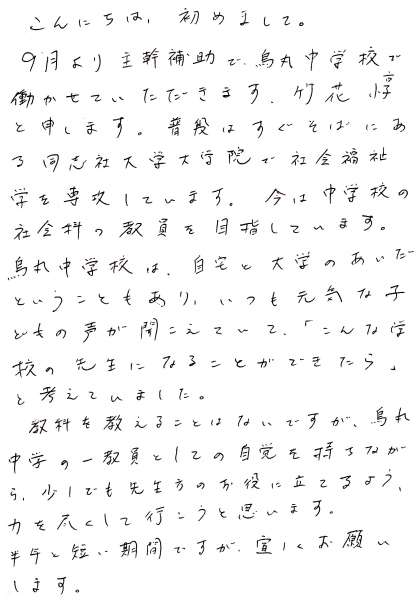 こんにちは、初めまして。
9月より主幹補助で、烏丸中学校で
働かせていただきます、竹花 惇
と申します。普段はすぐそばにあ
る同志社大学大学院で社会福祉
学を専攻しています。今は中学校の
社会科の教員を目指しています。
烏丸中学校は、自宅と大学のあいだ
ということもあり、いつも元気な子
どもの声が聞こえていて、「こんな学
校の先生になることができたら」
と考えていました。
教科を教えることはないですが、烏丸
中学の一教員としての自覚を持ちなが
ら、少しでも先生方のお役に立てるよう、
力を尽くして行こうと思います。
半年と短い期間ですが、宜しくお願い
します。